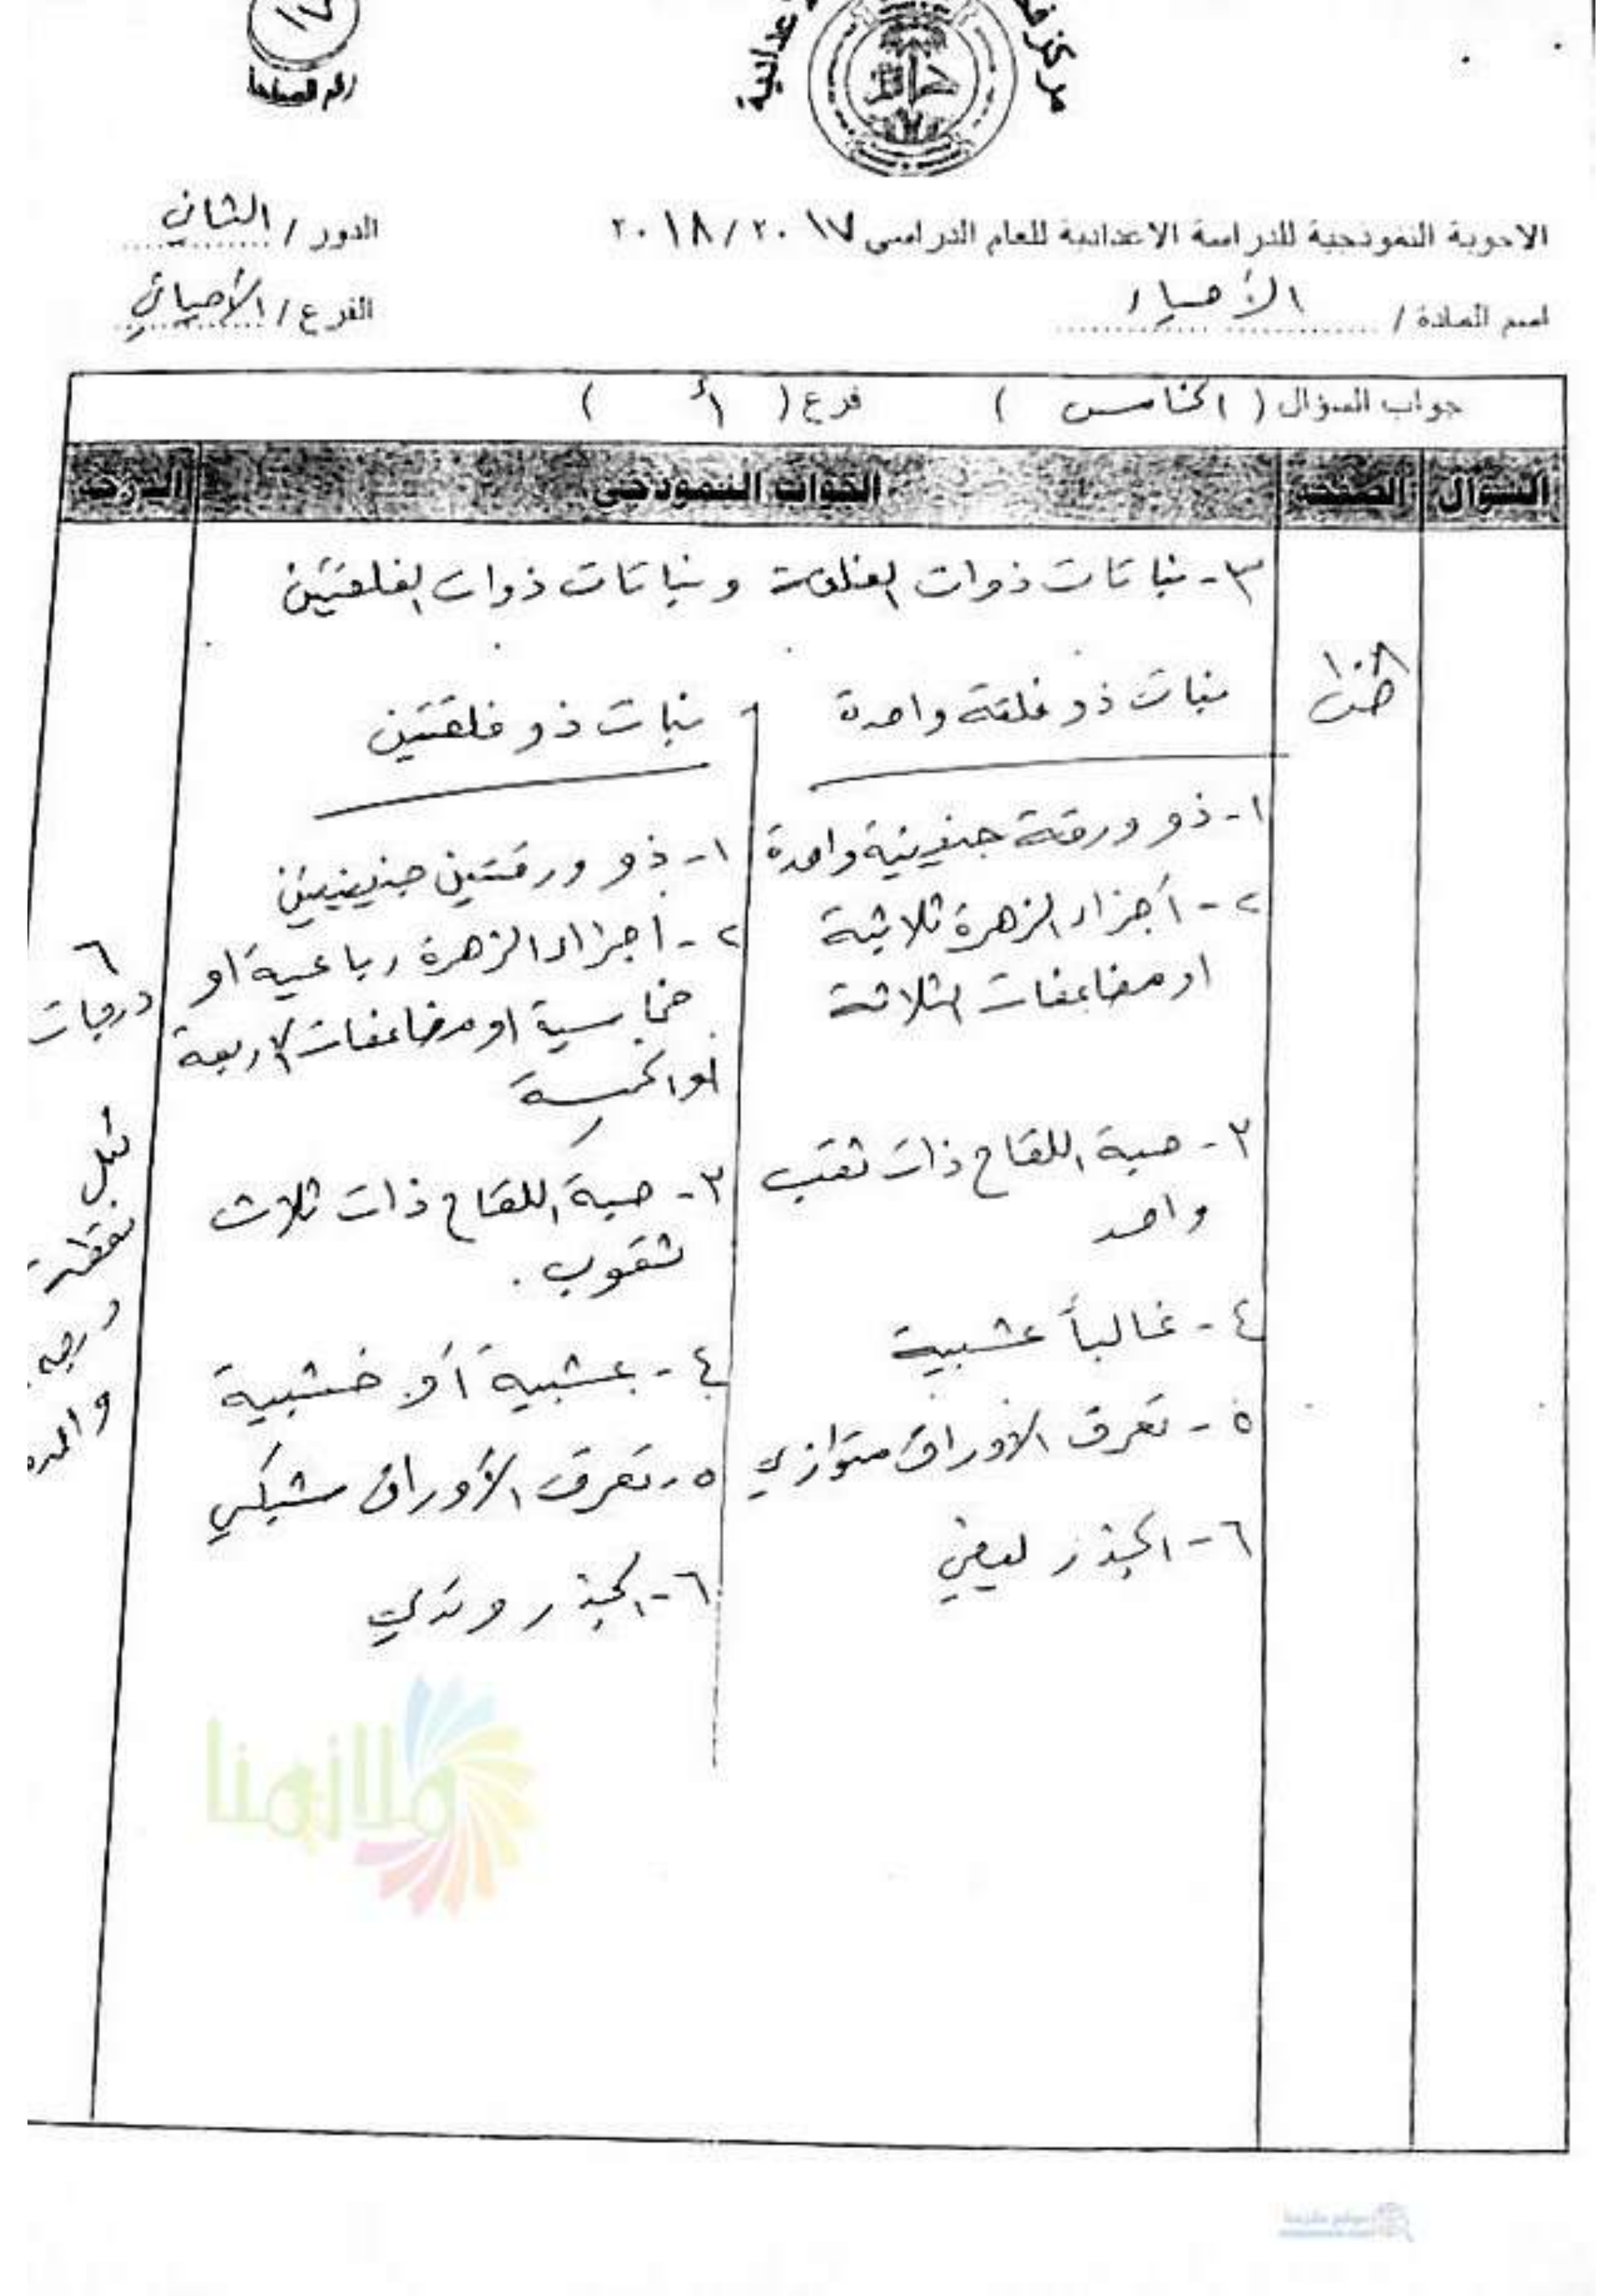 ١٧
رقم الصفحة
مركز فحص
الاعدادية
الاجوبة النموذجية للدراسة الاعدادية للعام الدراسي ٢٠١٧ / ٢٠١٨
الدور / الثاني
اسم المادة / الأحياء
الفرع / الأحيائي
جواب السؤال ( الخامس ) فرع ( أ )
السؤال الصفحة الجواب النموذجي الدرجة
٣- نباتات ذوات الفلقة ونباتات ذوات الفلقتين
نبات ذو فلقة واحدة
١- ذو ورقة جنينية واحدة
٢- أجزاء الزهرة ثلاثية
او مضاعفات الثلاثة
٣- حبة اللقاح ذات ثقب
واحد
٤- غالباً عشبية
٥- تعرق الاوراق متوازي
٦- الجذر ليفي
نبات ذو فلقتين
١- ذو ورقتين جنينيتين
٢- اجزاء الزهرة رباعية او
خماسية او مضاعفات الاربعة
أو الخمسة
٣- حبة اللقاح ذات ثلاث
ثقوب .
٤- عشبية أو خشبية
٥- تعرق الأوراق شبكي
٦- الجذر وتدي
٦
درجات
لكل
نقطة
درجة
واحدة
ملازمنا
موقع ملازمنا